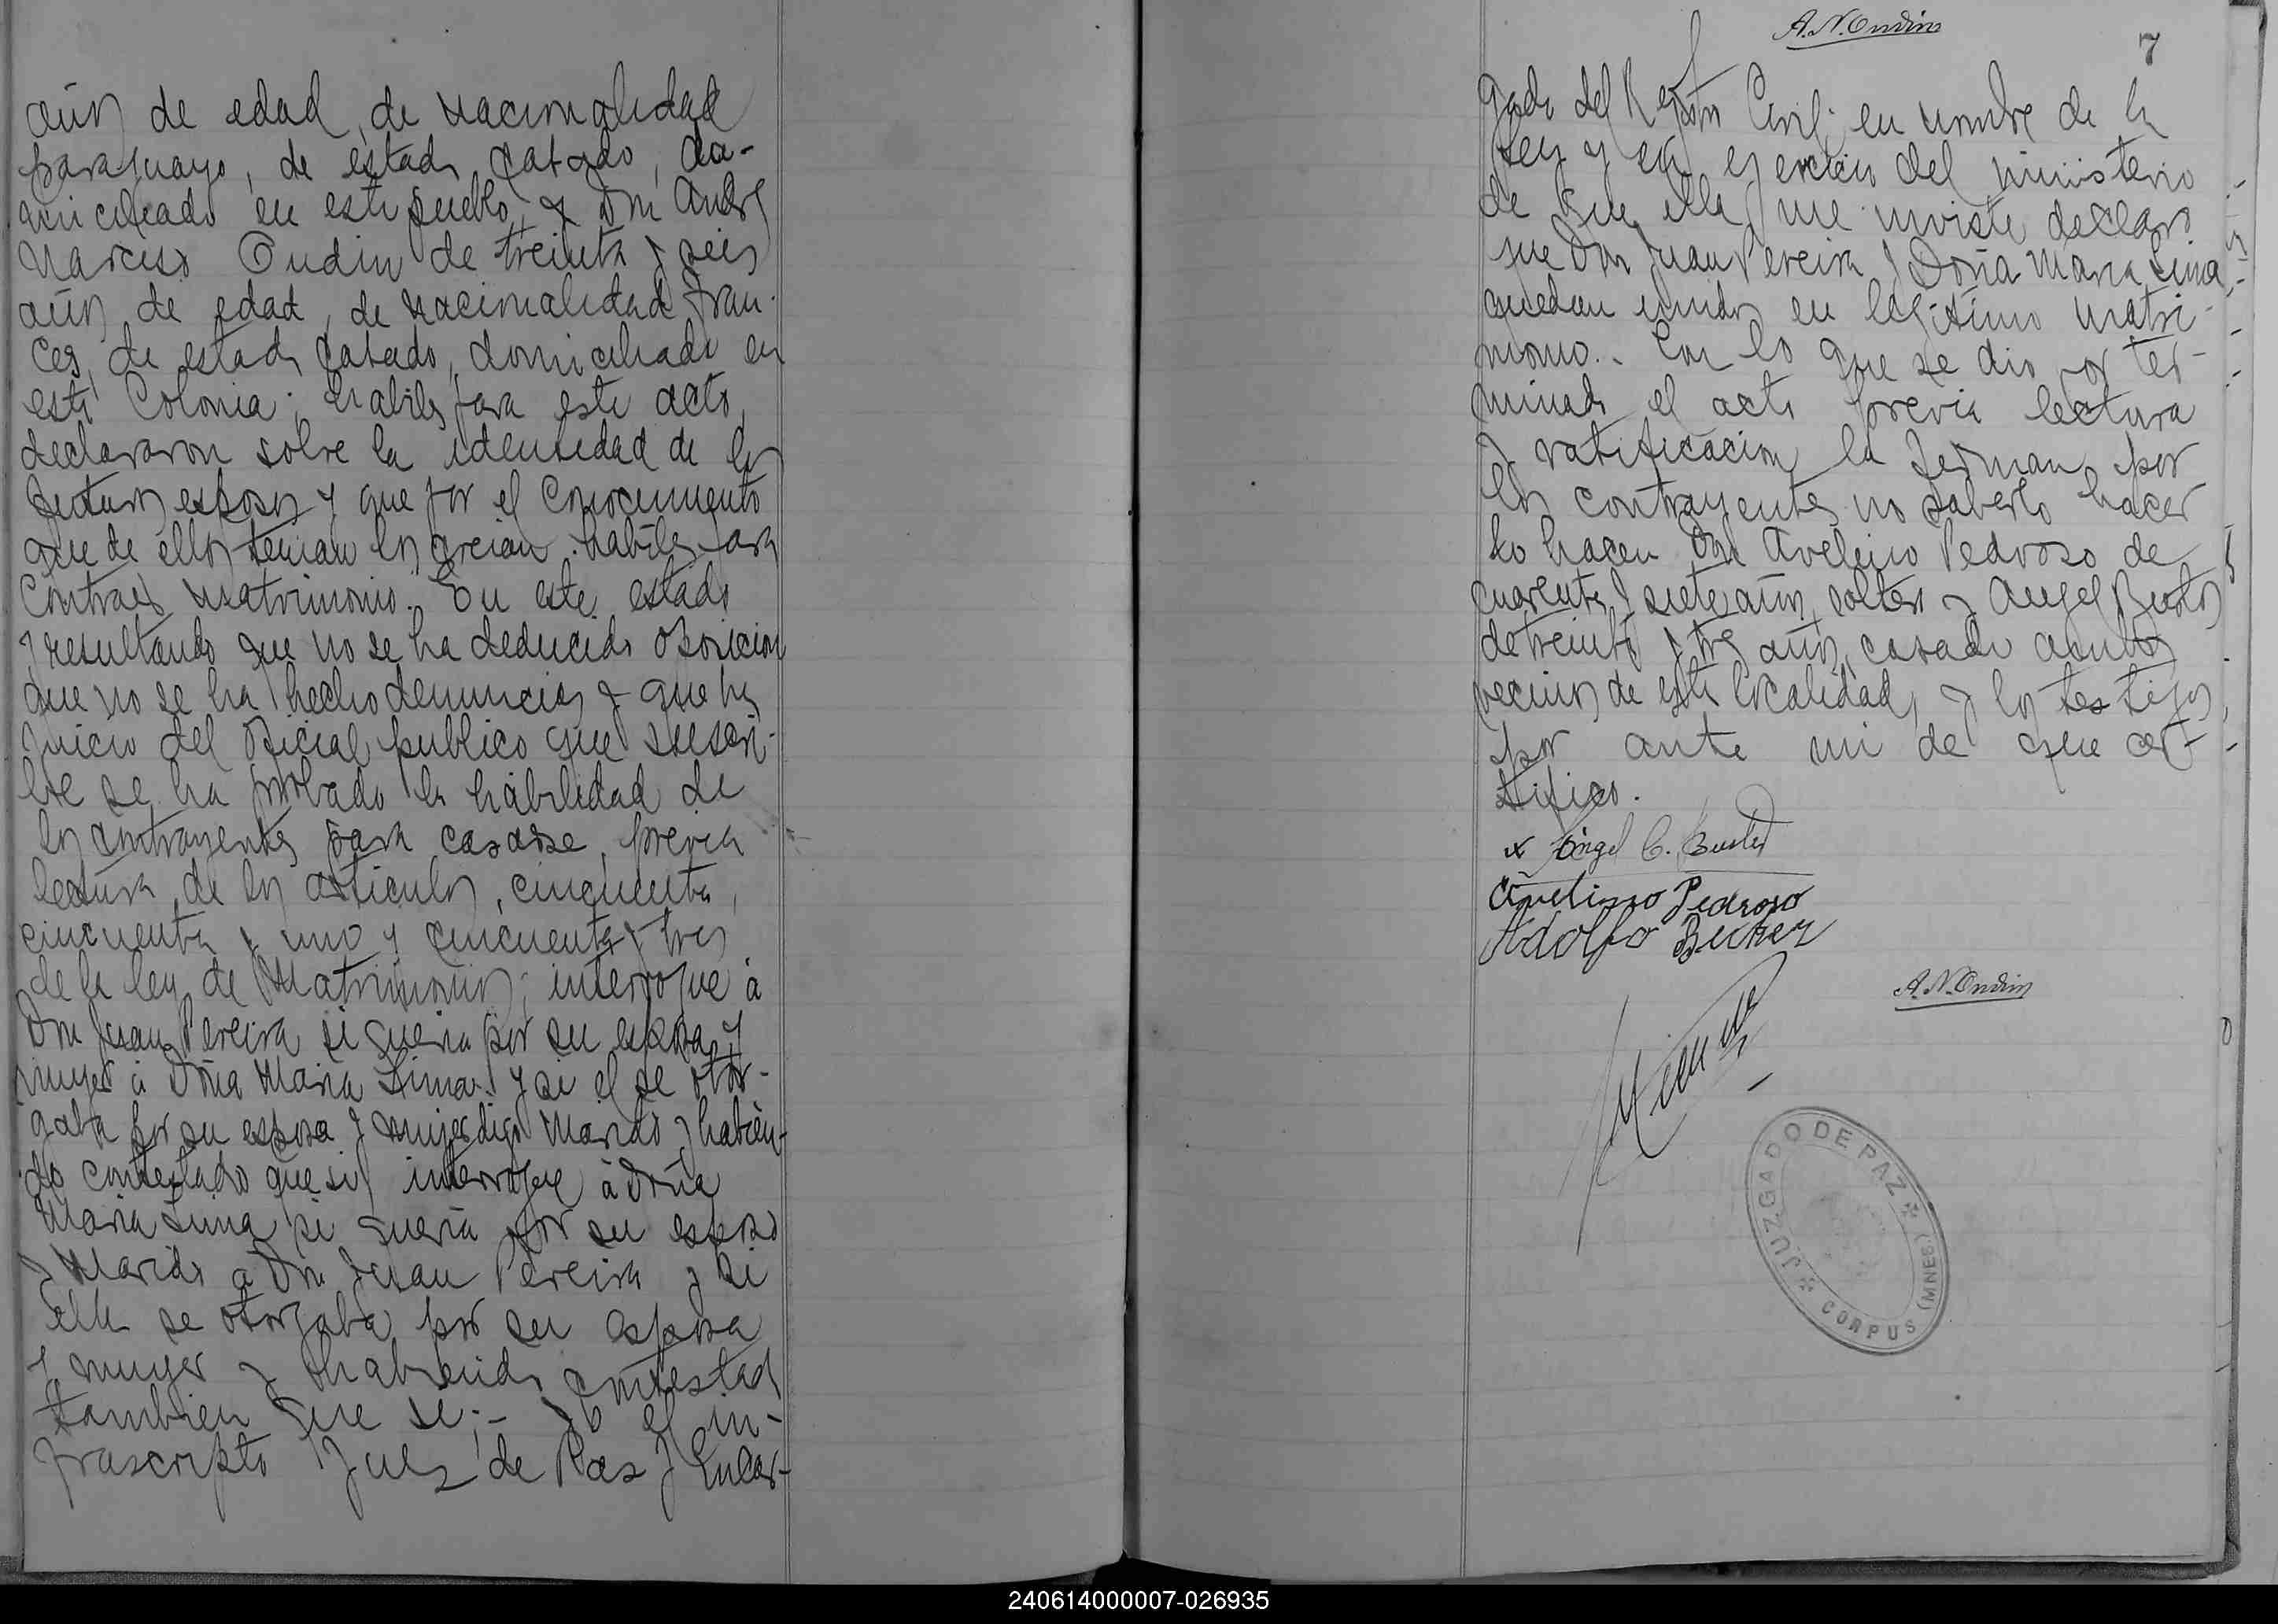 años de edad, de nacionalidad
paraguayo, de estado casado, do-
miciliado en este pueblo, y Don Andres
Narciso Oudin de treinta y seis
años de edad, de nacionalidad fran-
ces, de estado casado, domiciliado en
esta Colonia; habiles para este acto,
declararon sobre la identidad de los
futuros esposos y que por el conocimiento
que de ellos tenian los creian habiles para
contraer matrimonio. En este estado
y resultando que no se ha deducido oposicion
que no se ha hecho denuncias y que há
juicio del oficial publico que suscri-
be se ha probado la habilidad de
los contrayentes para casarse, previa
lectura de los articulos, cincuenta,
cincuenta y uno y cincuenta y tres
de la ley de Matrimonio; interrogué á
Don Juan Pereira si queria por su esposa y
mujer á Doña Maria Lima y si el se otor-
gaba por su esposa y mujer digo Marido y habien-
do contestado que si, interrogue á Doña
Maria Lima si queria por su esposo
y Marido a Don Juan Pereira y si
ella se otorgaba por su esposa
y mujer y habiendo contestado
tambien que si;- Yo el in-
frascripto Juez de Paz y Encar-
A. N. Oudin
7
gado del Registro Civil; en nombre de la
Ley y en ejercicio del ministerio
de que ella me inviste declaro
que Don Juan Pereira y Doña Maria Lima
quedan unidos en legitimo matri-
monio.. Con lo que se dio por ter-
minado el acto previa lectura
y ratificacion la firman por
los contrayentes no saberlo hacer
lo hacen Don Avelino Pedroso de
cuarenta y siete años, soltero y Angel Bustos
de treinta y tres años, casado ambos
vecinos de esta localidad, y los testigos
por ante mi de que cer-
tifico.
x Angel C. Bustos
Avelino Pedroso
Adolfo Becker
A. N. Oudin
JUZGADO DE PAZ
CORPUS (MNES.)
240614000007-026935